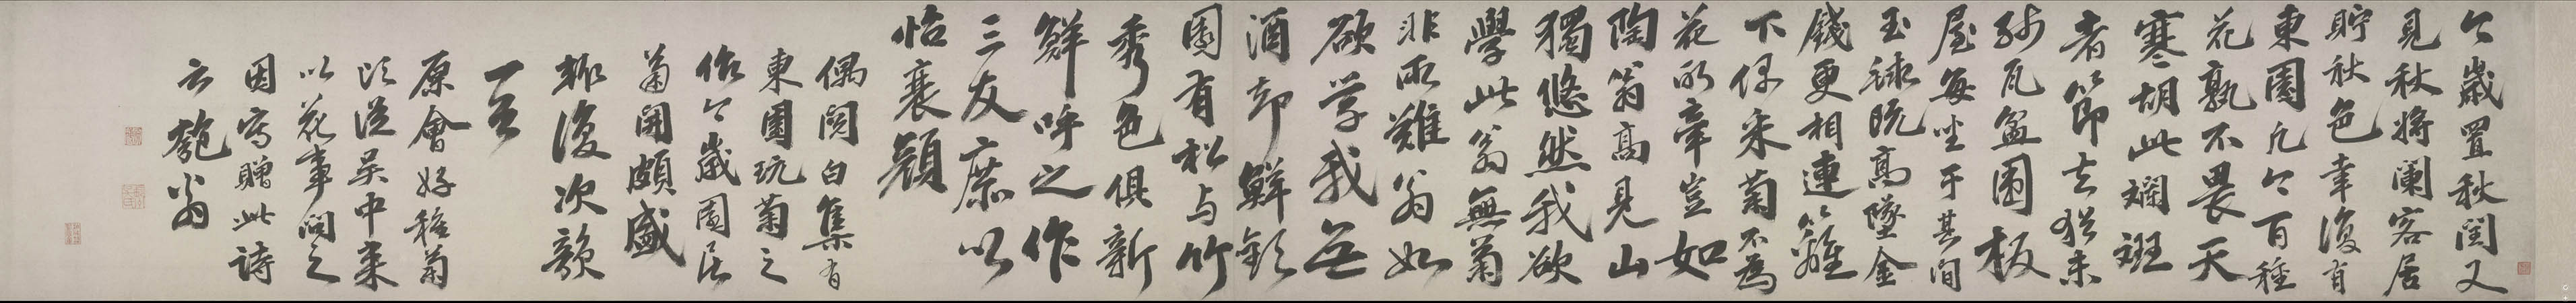 今歲置秋閏又
見秋將闌客居
貯秋色幸復有
東園凡今百種
花孰不畏天
寒胡此斕斑
者節去猶未
殘瓦盆困板
屋每坐于其間
玉球既高墜金
錢更相連籬
下采菊不為
花所牽豈如
陶翁高見山
獨悠然我欲
學此翁無菊
非所難翁如
欲学我無
酒却鮮歡
園有松与竹
秀色俱新
鮮呼之作
三友庶以
怡衰顏
偶閱白集有
東園玩菊之
作今歲園居
菊開頗盛
輒復次韻
一首
原會好種菊
頃從吳中來
以花事問之
因寫贈此詩
云匏翁